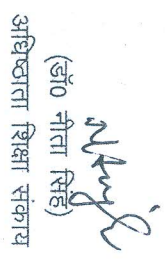 (डॉ० नीता सिंह)
अधिष्ठाता शिक्षा संकाय